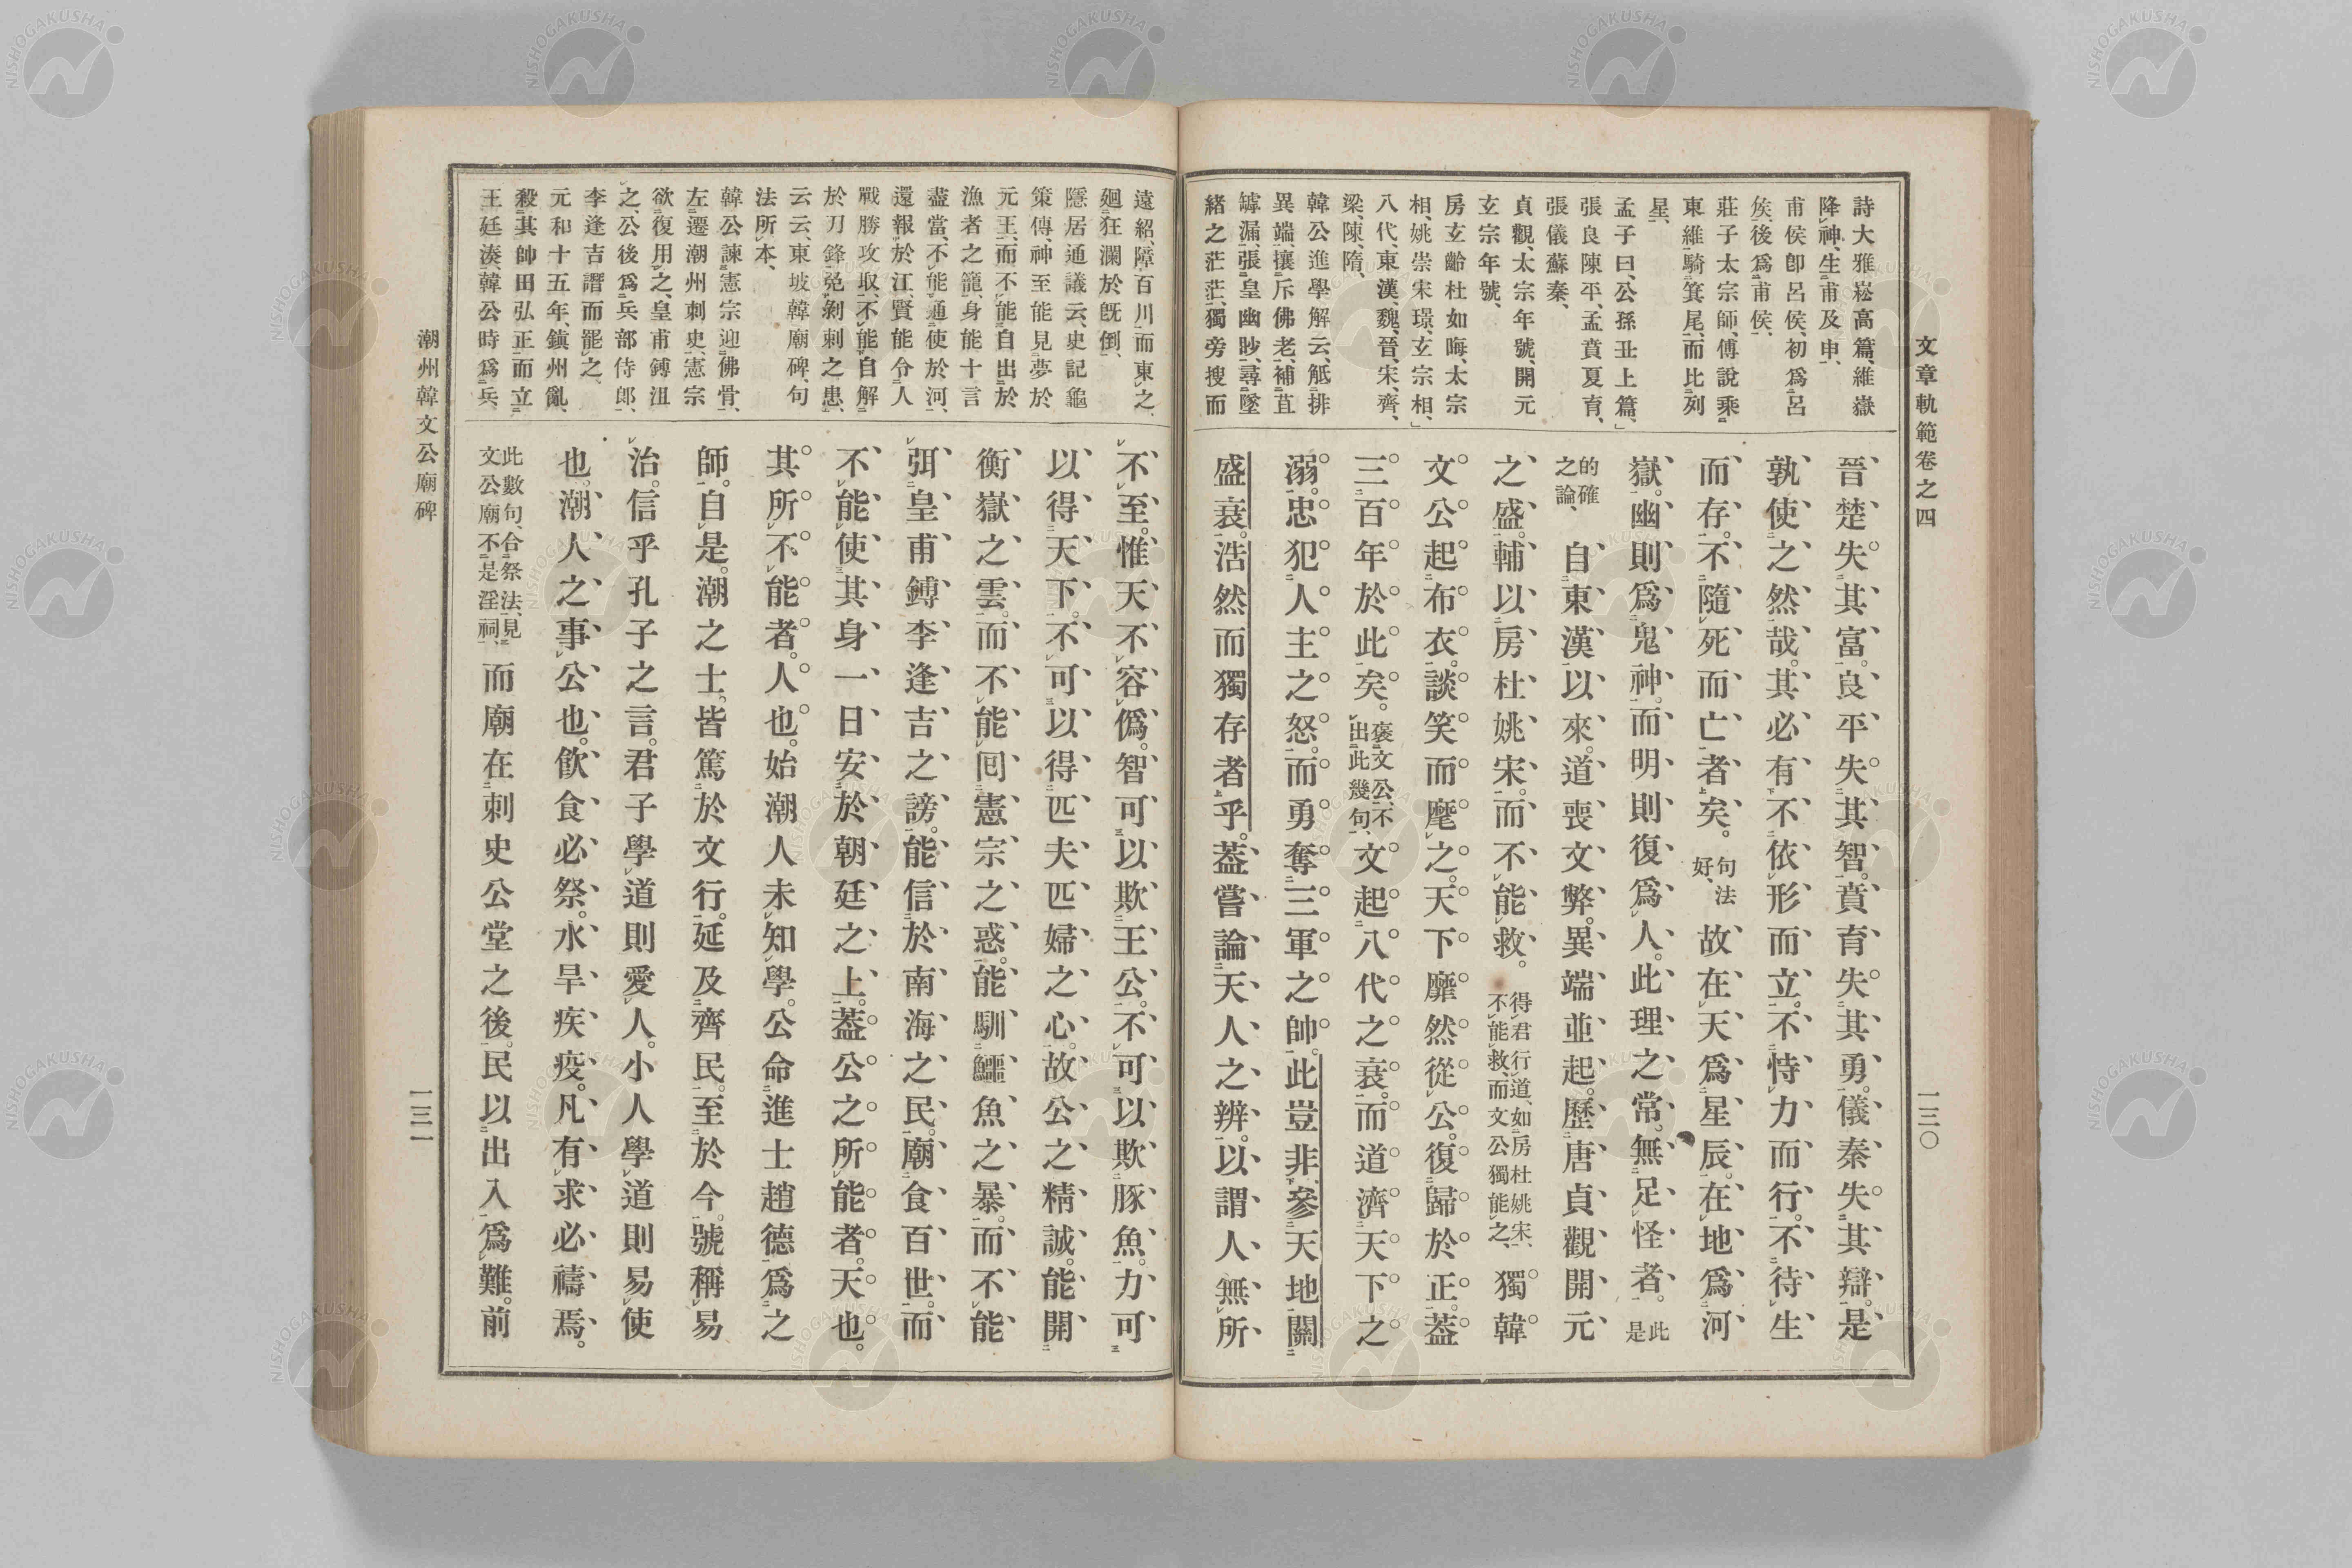 文章軌範卷之四
一三〇
詩大雅崧高篇、維嶽
降神、生甫及申、
甫侯卽呂侯、初爲呂
矦、後爲甫侯、
莊子太宗師、傅說乘
東維騎箕尾、而比列
星、
孟子曰、公孫丑上篇、
張良陳平、孟賁夏育、
張儀蘇秦、
貞觀、太宗年號、開元
玄宗年號、
房玄齡杜如晦、太宗
相、姚崇宋璟、玄宗相、
八代、東漢、魏、晉、宋、齊、
梁、陳、隋、
韓公進學解云、觝排
異端、攘斥佛老、補苴
罅漏、張皇幽眇、尋墜
緒之茫茫、獨旁搜而
晉楚失其富。良平失其智。賁育失其勇。儀秦失其辯。是
孰使之然哉。其必有不依形而立。不恃力而行。不待生
而存。不隨死而亡者矣。句法好、故在天爲星辰。在地爲河
嶽。幽則爲鬼神。而明則復爲人。此理之常。無足怪者。此是
的確之論、自東漢以來。道喪文弊。異端並起。歷唐貞觀開元
之盛。輔以房杜姚宋。而不能救。得君行道、如房杜姚宋、不能救、而文公獨能之、獨韓
文公起布衣。談笑而麾之。天下靡然從公。復歸於正。葢
三百年於此矣。褒文公、不出此幾句、文起八代之衰。而道濟天下之
溺。忠犯人主之怒。而勇奪三軍之帥。此豈非參天地關
盛衰。浩然而獨存者乎。葢嘗論天人之辨。以謂人無所
遠紹、障百川而東之、
廻狂瀾於旣倒、
隱居通議云、史記龜
策傳、神至能見夢於
元王、而不能自出於
漁者之籠、身能十言
盡當、不能通使於河、
還報於江、賢能令人
戰勝攻取、不能自解
於刀鋒、免剝刺之患、
云云、東坡韓廟碑、句
法所本、
韓公諫憲宗迎佛骨、
左遷潮州刺史、憲宗
欲復用之、皇甫鎛沮
之、公後爲兵部侍郎、
李逢吉譖而罷之、
元和十五年、鎭州亂、
殺其帥田弘正、而立
王廷湊、韓公時爲兵
不至。惟天不容僞。智可以欺王公。不可以欺豚魚。力可
以得天下。不可以得匹夫匹婦之心。故公之精誠。能開
衡嶽之雲。而不能回憲宗之惑。能馴鱷魚之暴。而不能
弭皇甫鎛李逢吉之謗。能信於南海之民。廟食百世。而
不能使其身一日安於朝廷之上。葢公之所能者。天也。
其所不能者。人也。始潮人未知學。公命進士趙德爲之
師。自是。潮之士。皆篤於文行。延及齊民。至於今。號稱易
治。信乎孔子之言。君子學道則愛人。小人學道則易使
也。潮人之事公也。飮食必祭。水旱疾疫。凡有求必禱焉。
此數句、合祭法、見文公廟不是淫祠、而廟在刺史公堂之後。民以出入爲難。前
潮州韓文公廟碑
一三一